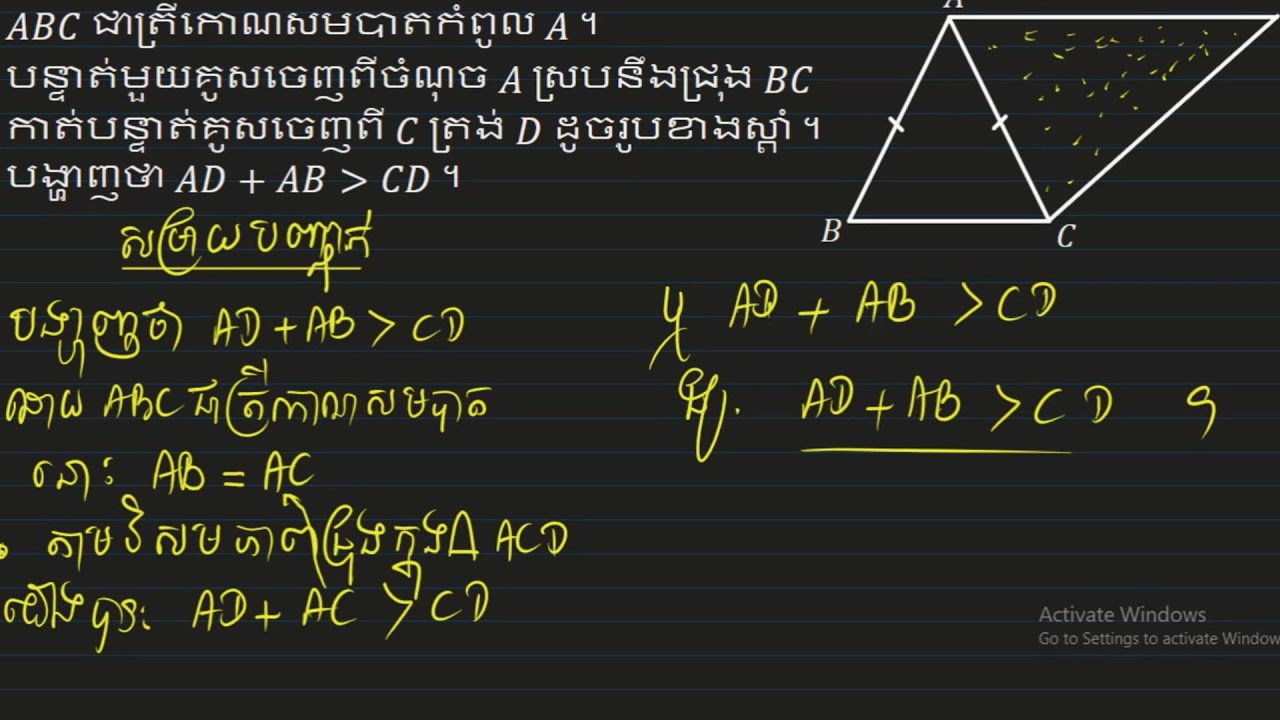 ABC ជាត្រីកោណសមបាតកំពូល A ។
បន្ទាត់មួយគូសចេញពីចំណុច A ស្របនឹងជ្រុង BC
កាត់បន្ទាត់គូសចេញពី C ត្រង់ D ដូចរូបខាងស្តាំ ។
បង្ហាញថា AD + AB > CD ។
សម្រាយបញ្ជាក់
បង្ហាញថា AD + AB > CD
ដោយ ABC ជាត្រីកោណសមបាត
នោះ AB = AC
តាមវិសមភាពជ្រុងក្នុង Δ ACD
យើងបាន: AD + AC > CD
A
B
C
ឬ AD + AB > CD
ដូច្នេះ AD + AB > CD ។
Activate Windows
Go to Settings to activate Window